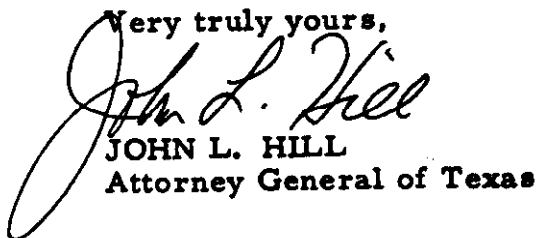 Very truly yours,
John L. Hill
JOHN L. HILL
Attorney General of Texas